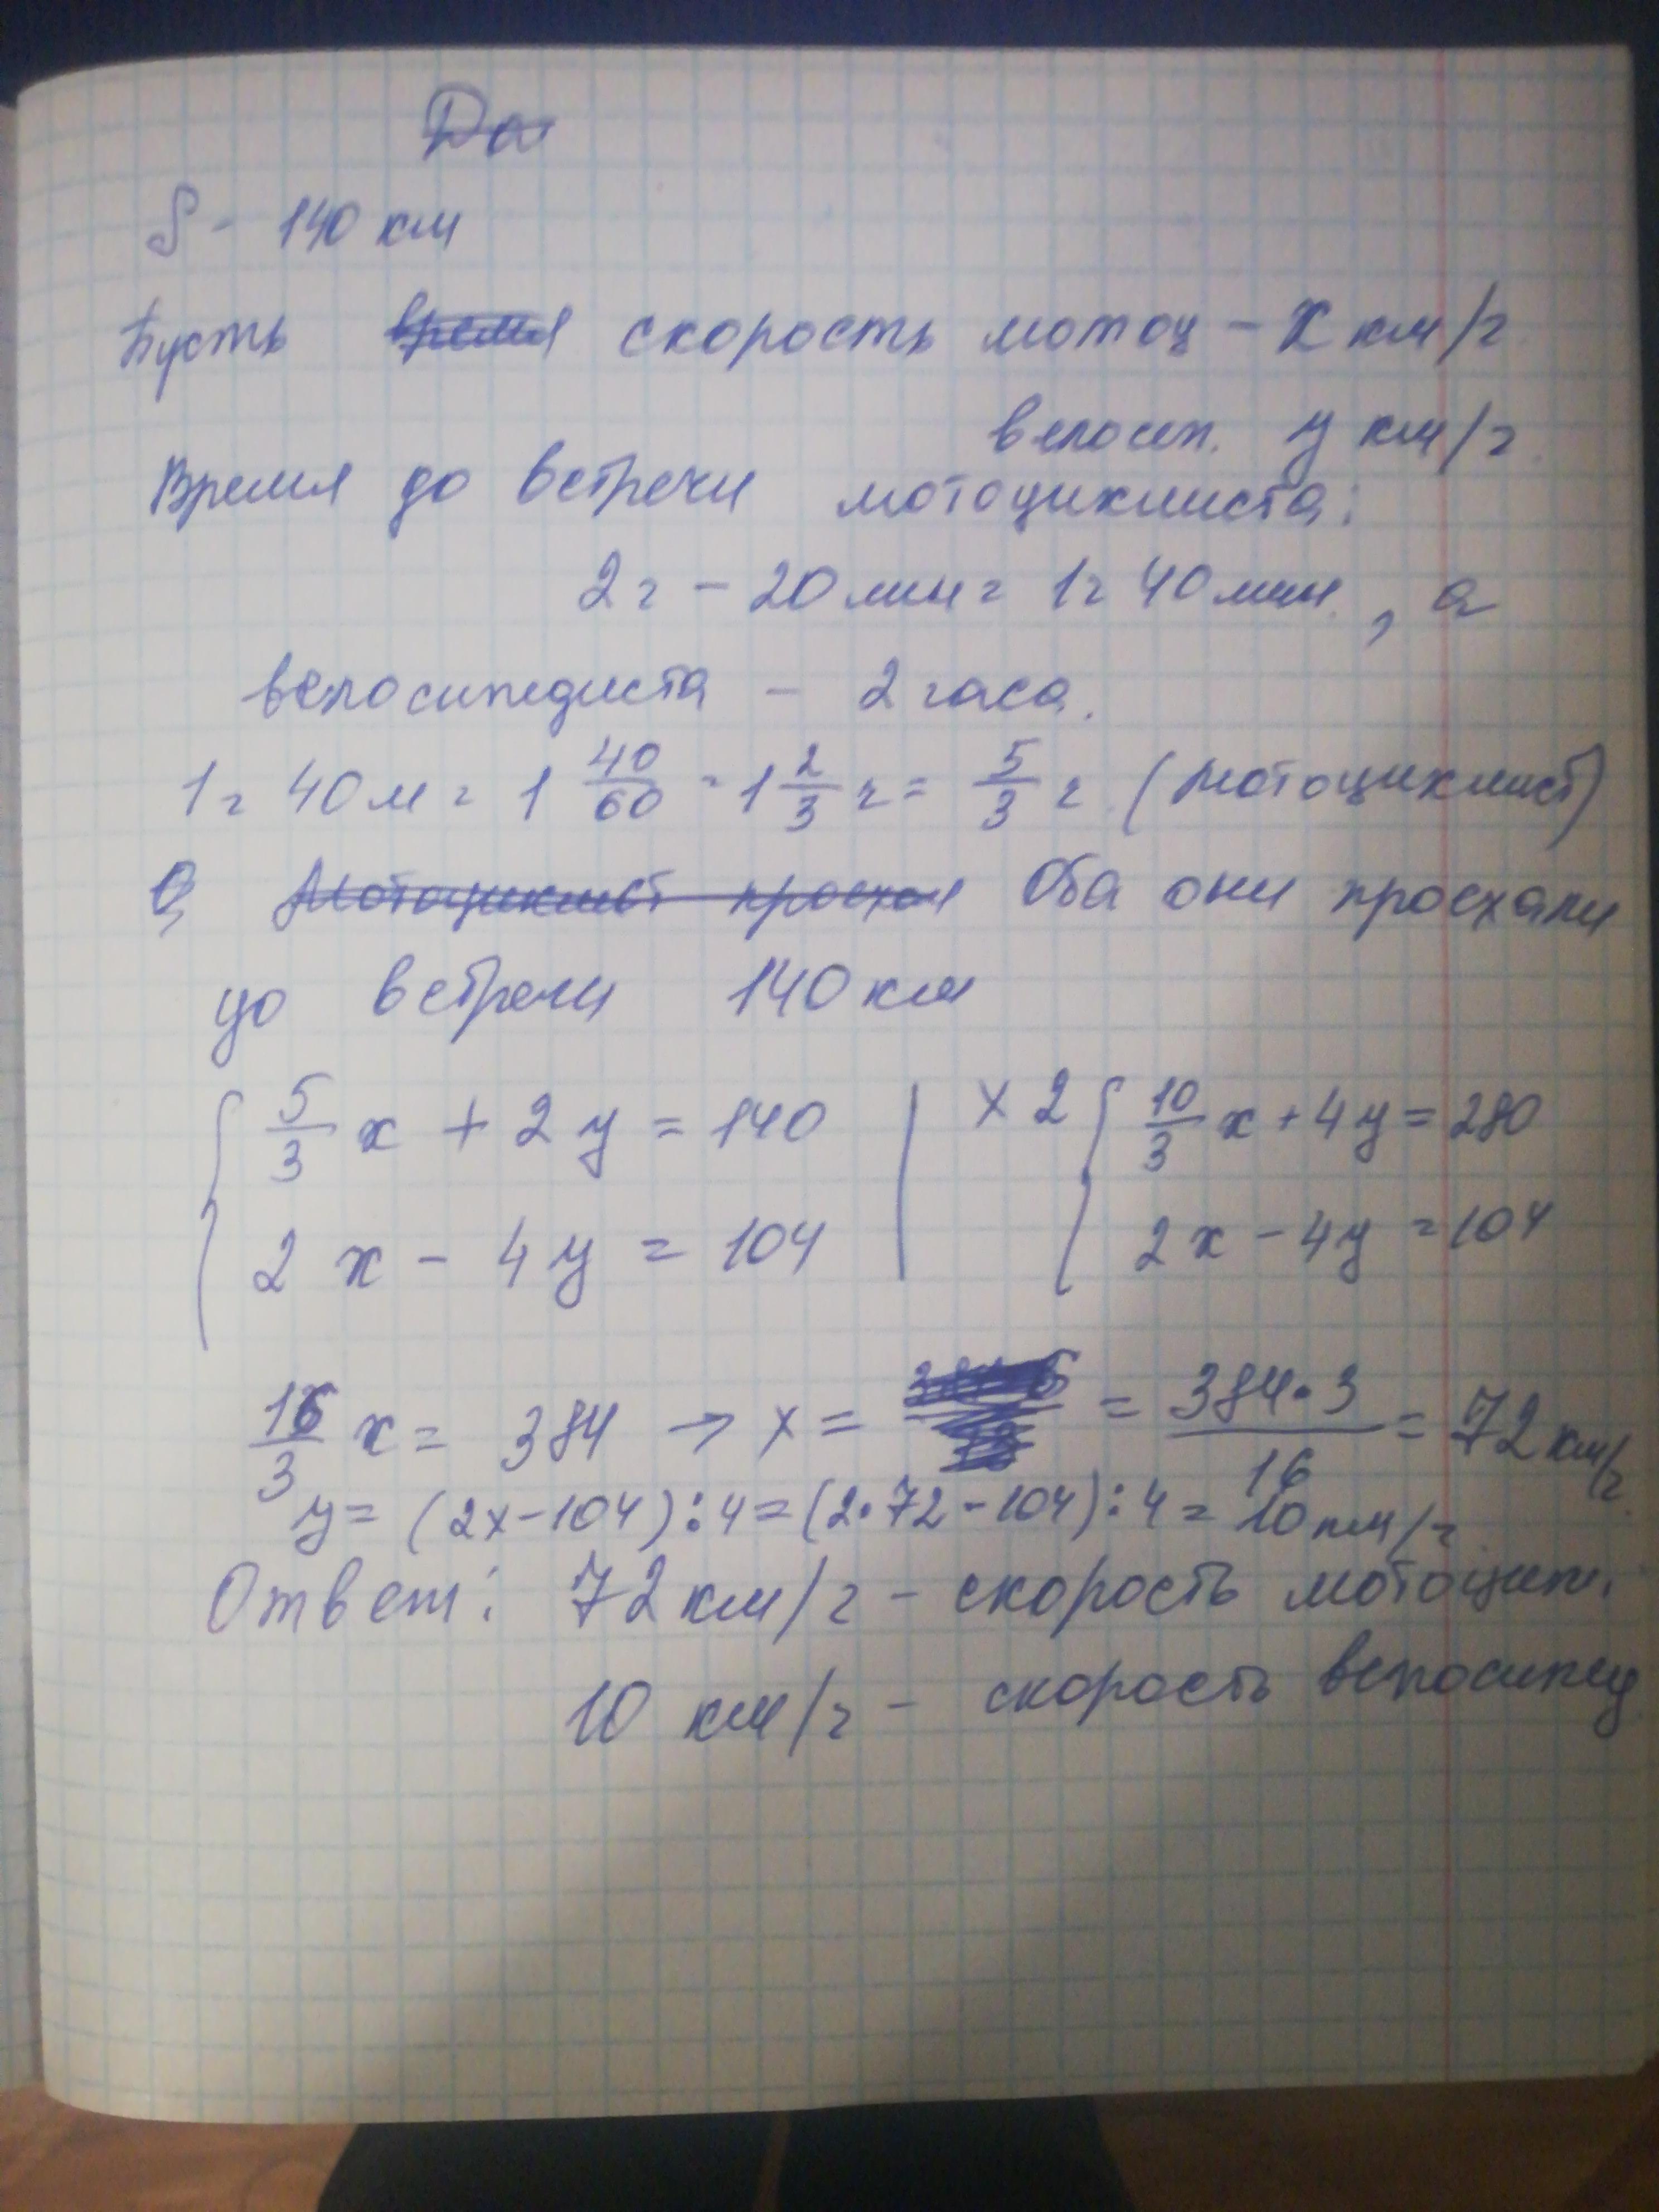 Да
S - 140 км
Пусть время скорость мотоц - x км/ч
велосип. y км/ч.
Время до встречи мотоциклиста:
2ч - 20 мин = 1ч 40 мин., а
велосипедиста - 2 часа.
1ч 40 м = 1 40/60 = 1 2/3 ч = 5/3 ч (мотоциклист)
Мотоциклист проехал Оба они проехали
до встречи 140 км
{ 5/3 x + 2y = 140 | × 2 { 10/3 x + 4y = 280
2x - 4y = 104 2x - 4y = 104
16/3 x = 384 → x = = 384·3/16 = 72 км/ч
y = (2x - 104) : 4 = (2·72 - 104) : 4 = 10 км/ч
Ответ: 72 км/ч - скорость мотоцик.
10 км/ч - скорость велосипед